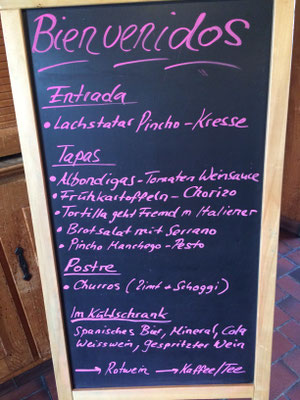 Bienvenidos
Entrada
• Lachstatar Pincho - Kresse
Tapas
• Albondigas - Tomaten Weinsauce
• Frühkartoffeln - Chorizo
• Tortilla geht Fremd m. Italiener
• Brotsalat mit Serrano
• Pincho Manchego - Pesto
Postre
• Churros (Zimt + Schoggi)
Im Kühlschrank
Spanisches Bier, Mineral, Cola
Weisswein, gespritzter Wein
→ Rotwein → Kaffee/Tee